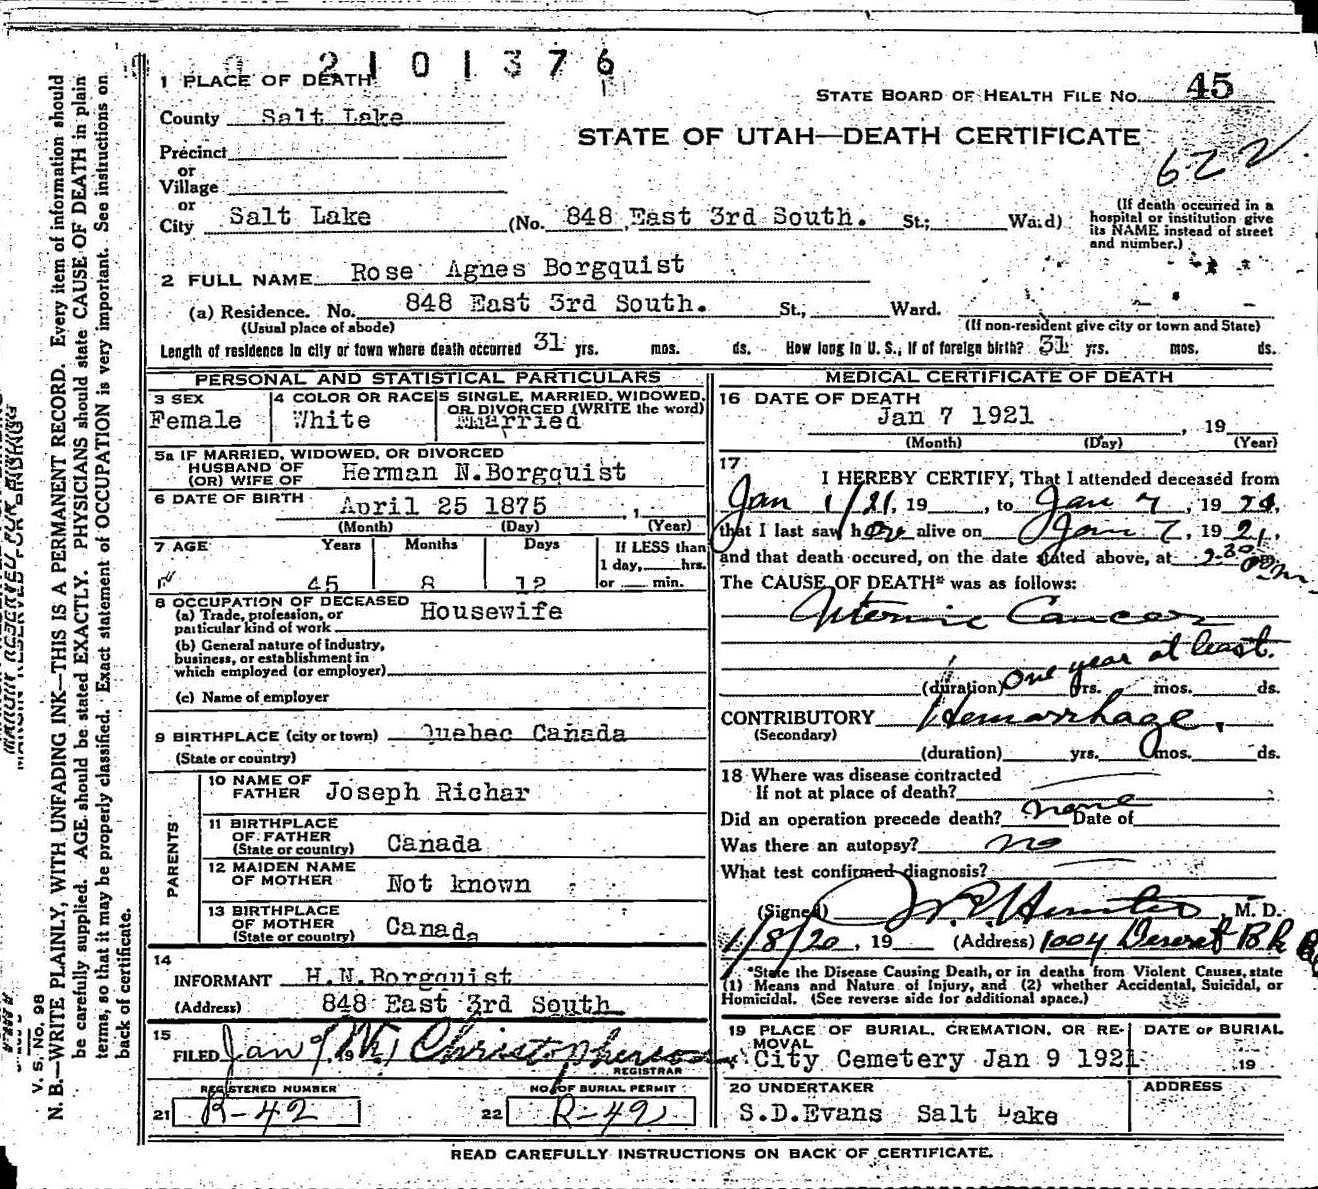 2101376
1 PLACE OF DEATH
STATE BOARD OF HEALTH FILE NO. 45
County Salt Lake
STATE OF UTAH—DEATH CERTIFICATE
622
Precinct
or
Village
or
City Salt Lake (No. 848 East 3rd South. St.; Ward)
(If death occurred in a
hospital or institution give
its NAME instead of street
and number.)
2 FULL NAME Rose Agnes Borgquist
(a) Residence. No. 848 East 3rd South. St., Ward.
(Usual place of abode) (If non-resident give city or town and State)
Length of residence in city or town where death occurred 31 yrs. mos. ds. How long in U. S., if of foreign birth? 31 yrs. mos. ds.
PERSONAL AND STATISTICAL PARTICULARS
3 SEX Female
4 COLOR OR RACE White
5 SINGLE, MARRIED, WIDOWED,
OR DIVORCED (WRITE the word)
Married
5a IF MARRIED, WIDOWED, OR DIVORCED
HUSBAND OF
(OR) WIFE OF Herman N.Borgquist
6 DATE OF BIRTH April 25 1875
(Month) (Day) (Year)
7 AGE Years Months Days If LESS than
1 day, hrs.
45 8 12 or min.
8 OCCUPATION OF DECEASED
(a) Trade, profession, or
particular kind of work Housewife
(b) General nature of industry,
business, or establishment in
which employed (or employer)
(c) Name of employer
9 BIRTHPLACE (city or town) Quebec Canada
(State or country)
PARENTS
10 NAME OF
FATHER Joseph Richar
11 BIRTHPLACE
OF FATHER
(State or country) Canada
12 MAIDEN NAME
OF MOTHER Not known
13 BIRTHPLACE
OF MOTHER
(State or country) Canada
14
INFORMANT H.N.Borgquist
(Address) 848 East 3rd South
15
FILED Jan 9 19 Christopherson
REGISTRAR
REGISTERED NUMBER
21 R-42
NO. OF BURIAL PERMIT
22 R-42
MEDICAL CERTIFICATE OF DEATH
16 DATE OF DEATH
Jan 7 1921 , 19
(Month) (Day) (Year)
17
I HEREBY CERTIFY, That I attended deceased from
Jan 1/21, 19 , to Jan 7, 1921,
that I last saw her alive on Jan 7, 1921,
and that death occured, on the date stated above, at 2.30 pm
The CAUSE OF DEATH* was as follows:
Uterine Cancer
One year at least.
(duration) yrs. mos. ds.
CONTRIBUTORY Hemorrhage.
(Secondary)
(duration) yrs. mos. ds.
18 Where was disease contracted
If not at place of death?
Did an operation precede death? none Date of
Was there an autopsy? no
What test confirmed diagnosis?
(Signed) M. D.
1/8/20, 19 (Address) 1004 Deseret Bk
*State the Disease Causing Death, or in deaths from Violent Causes, state
(1) Means and Nature of Injury, and (2) whether Accidental, Suicidal, or
Homicidal. (See reverse side for additional space.)
19 PLACE OF BURIAL, CREMATION, OR RE-
MOVAL
DATE OF BURIAL
City Cemetery Jan 9 1921 19
20 UNDERTAKER
ADDRESS
S.D.Evans Salt Lake
READ CAREFULLY INSTRUCTIONS ON BACK OF CERTIFICATE.
V. S. No. 98
N. B.—WRITE PLAINLY, WITH UNFADING INK—THIS IS A PERMANENT RECORD. Every item of information should
be carefully supplied. AGE should be stated EXACTLY. PHYSICIANS should state CAUSE OF DEATH in plain
terms, so that it may be properly classified. Exact statement of OCCUPATION is very important. See instructions on
back of certificate.
MARGIN RESERVED FOR BINDING